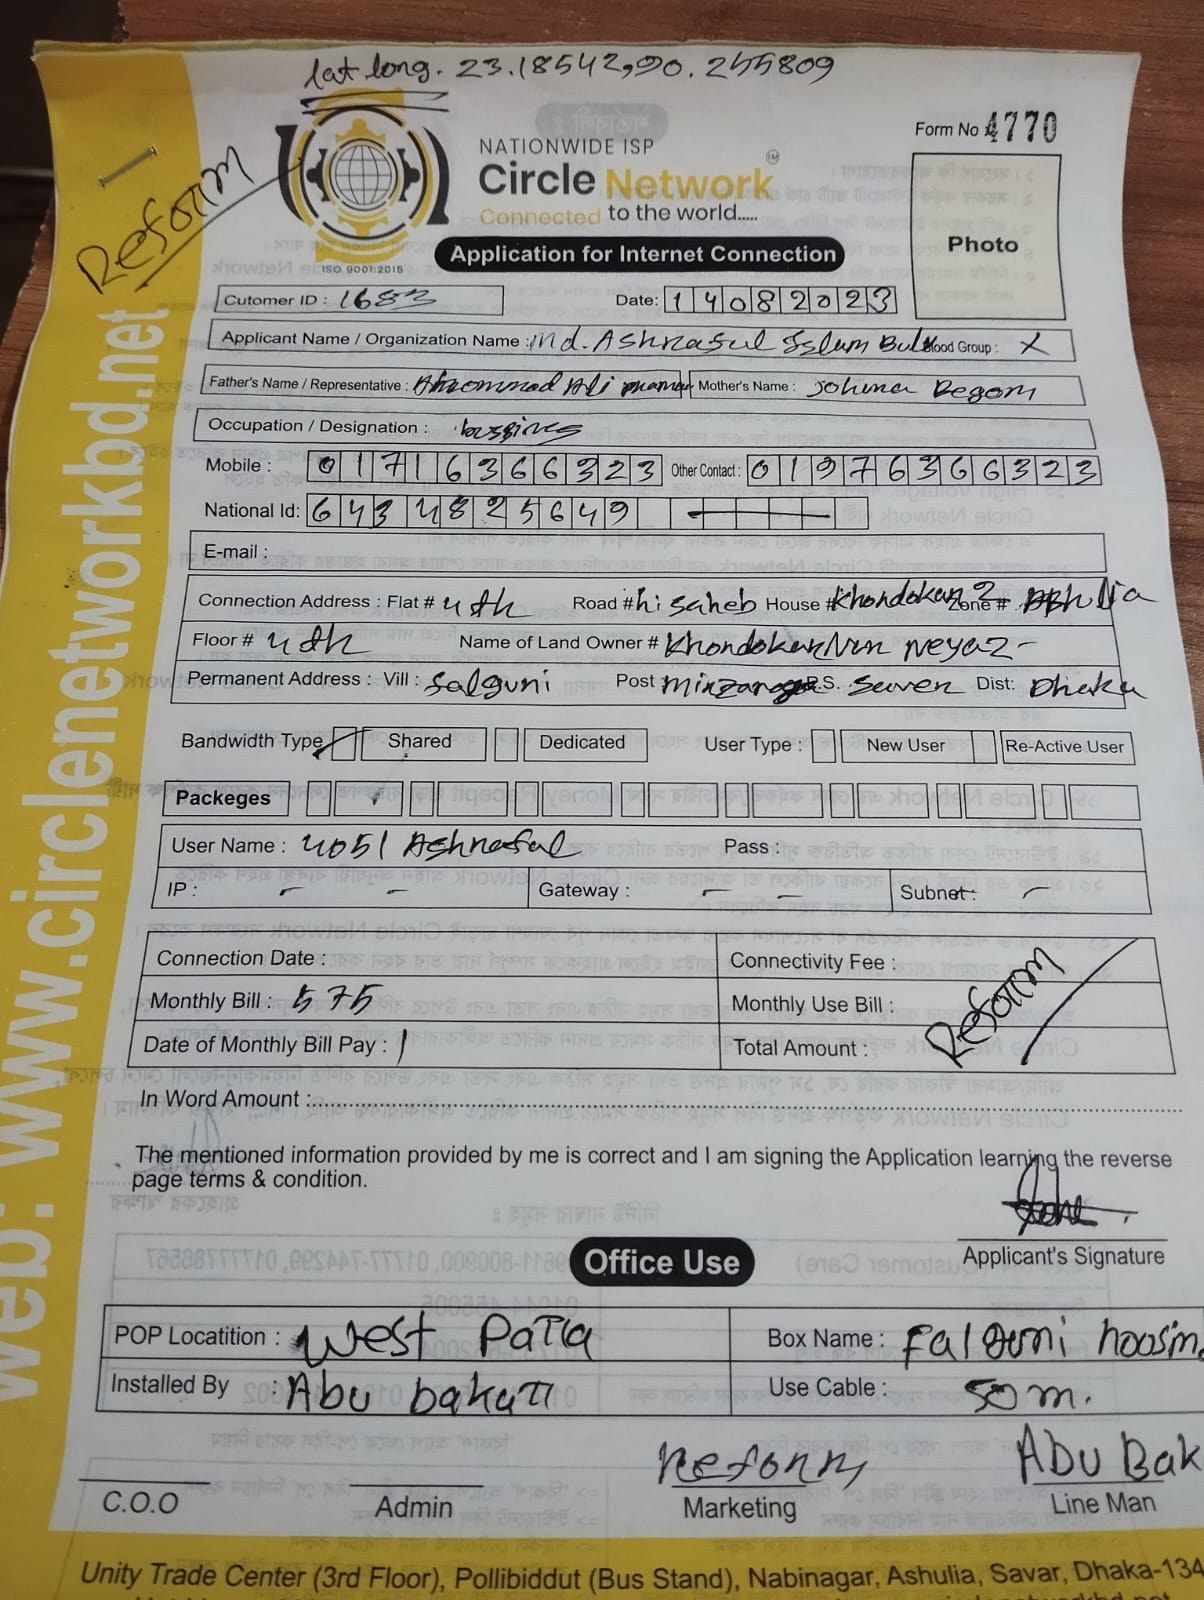 lat long. 23.18542,90.255809
Form No 4770
Reform
NATIONWIDE ISP
Circle Network TM
Connected to the world.....
ISO 9001:2015
Application for Internet Connection
Photo
Cutomer ID : 1683 Date: 14082023
Applicant Name / Organization Name : Md. Ashraful Islam Bul Blood Group : X
Father's Name / Representative : Ali Mother's Name : Johura Begom
Occupation / Designation : bussines
Mobile : 01716366323 Other Contact : 01976366323
National Id: 6434825649
E-mail :
Connection Address : Flat # 4th Road # hi saheb House # Khondokar Zone #
Floor # 4th Name of Land Owner # Khondokar Nur Neyaz
Permanent Address : Vill : falguni Post : P.S. Saver Dist: Dhaka
Bandwidth Type Shared Dedicated User Type : New User Re-Active User
Packeges
User Name : 4051 Ashraful Pass :
IP : - - Gateway : - - Subnet : -
Connection Date : Connectivity Fee :
Monthly Bill : 575 Monthly Use Bill :
Reform
Date of Monthly Bill Pay : 1 Total Amount :
In Word Amount :
The mentioned information provided by me is correct and I am signing the Application learning the reverse
page terms & condition.
Applicant's Signature
Office Use
POP Locatition : West Para Box Name : Falguni hoosin
Installed By : Abu bakar Use Cable : 50 m.
Reform Abu Bak
C.O.O Admin Marketing Line Man
Unity Trade Center (3rd Floor), Pollibiddut (Bus Stand), Nabinagar, Ashulia, Savar, Dhaka-134
web: www.circlenetworkbd.net